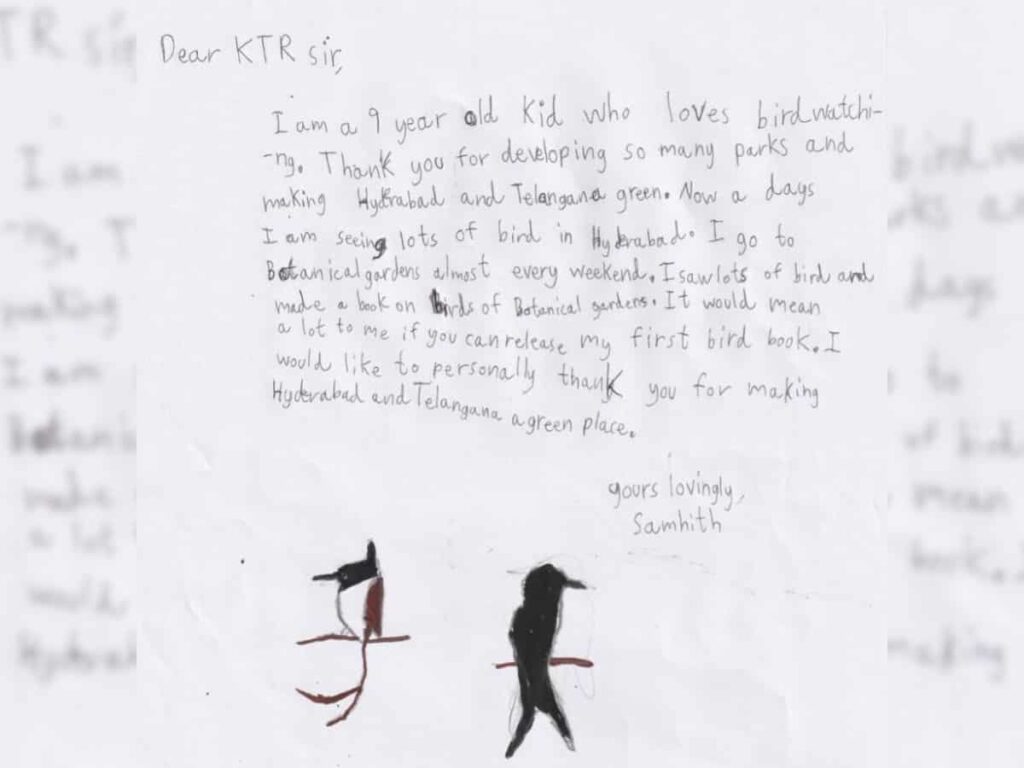 Dear KTR sir,
I am a 9 year old kid who loves birdwatchi-
-ng. Thank you for developing so many parks and
making Hyderabad and Telangana green. Now a days
I am seeing lots of bird in Hyderabad. I go to
Botanical gardens almost every weekend. I saw lots of bird and
made a book on birds of Botanical gardens. It would mean
a lot to me if you can release my first bird book. I
would like to personally thank you for making
Hyderabad and Telangana a green place.
yours lovingly,
Samhith